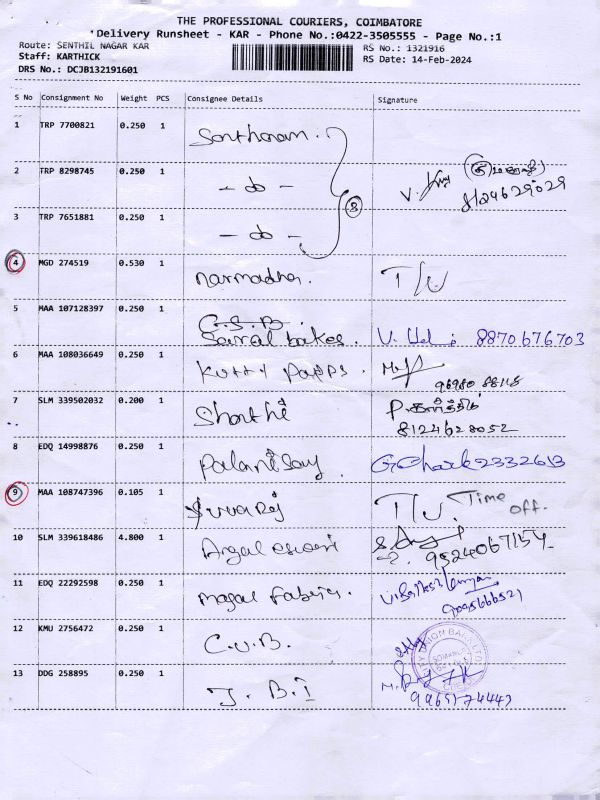 THE PROFESSIONAL COURIERS, COIMBATORE
Delivery Runsheet - KAR - Phone No.:0422-3505555 - Page No.:1
Route: SENTHIL NAGAR KAR
RS No.: 1321916
Staff: KARTHICK
RS Date: 14-Feb-2024
DRS No.: DCJB132191601
S No Consignment No Weight PCS Consignee Details Signature
1 TRP 7700821 0.250 1
2 TRP 8298745 0.250 1 - do -
8124629029
3 TRP 7651881 0.250 1 - do -
3
4 MGD 274519 0.530 1 narmadha.
5 MAA 107128397 0.250 1 G.S.B.
bakes. 8870676703
6 MAA 108036649 0.250 1 Kutty
7 SLM 339502032 0.200 1 Shakthi P.கார்த்திக்
8124628052
8 EDQ 14998876 0.250 1 Palanisay 2332613
9 MAA 108747396 0.105 1 Sivaraj Time
off.
10 SLM 339618486 4.800 1 9524067154
11 EDQ 22292598 0.250 1 Magal Fabric.
9095666521
12 KMU 2756472 0.250 1 C.U.B.
CITY UNION BANK LTD
13 DDG 258895 0.250 1 J.B.I